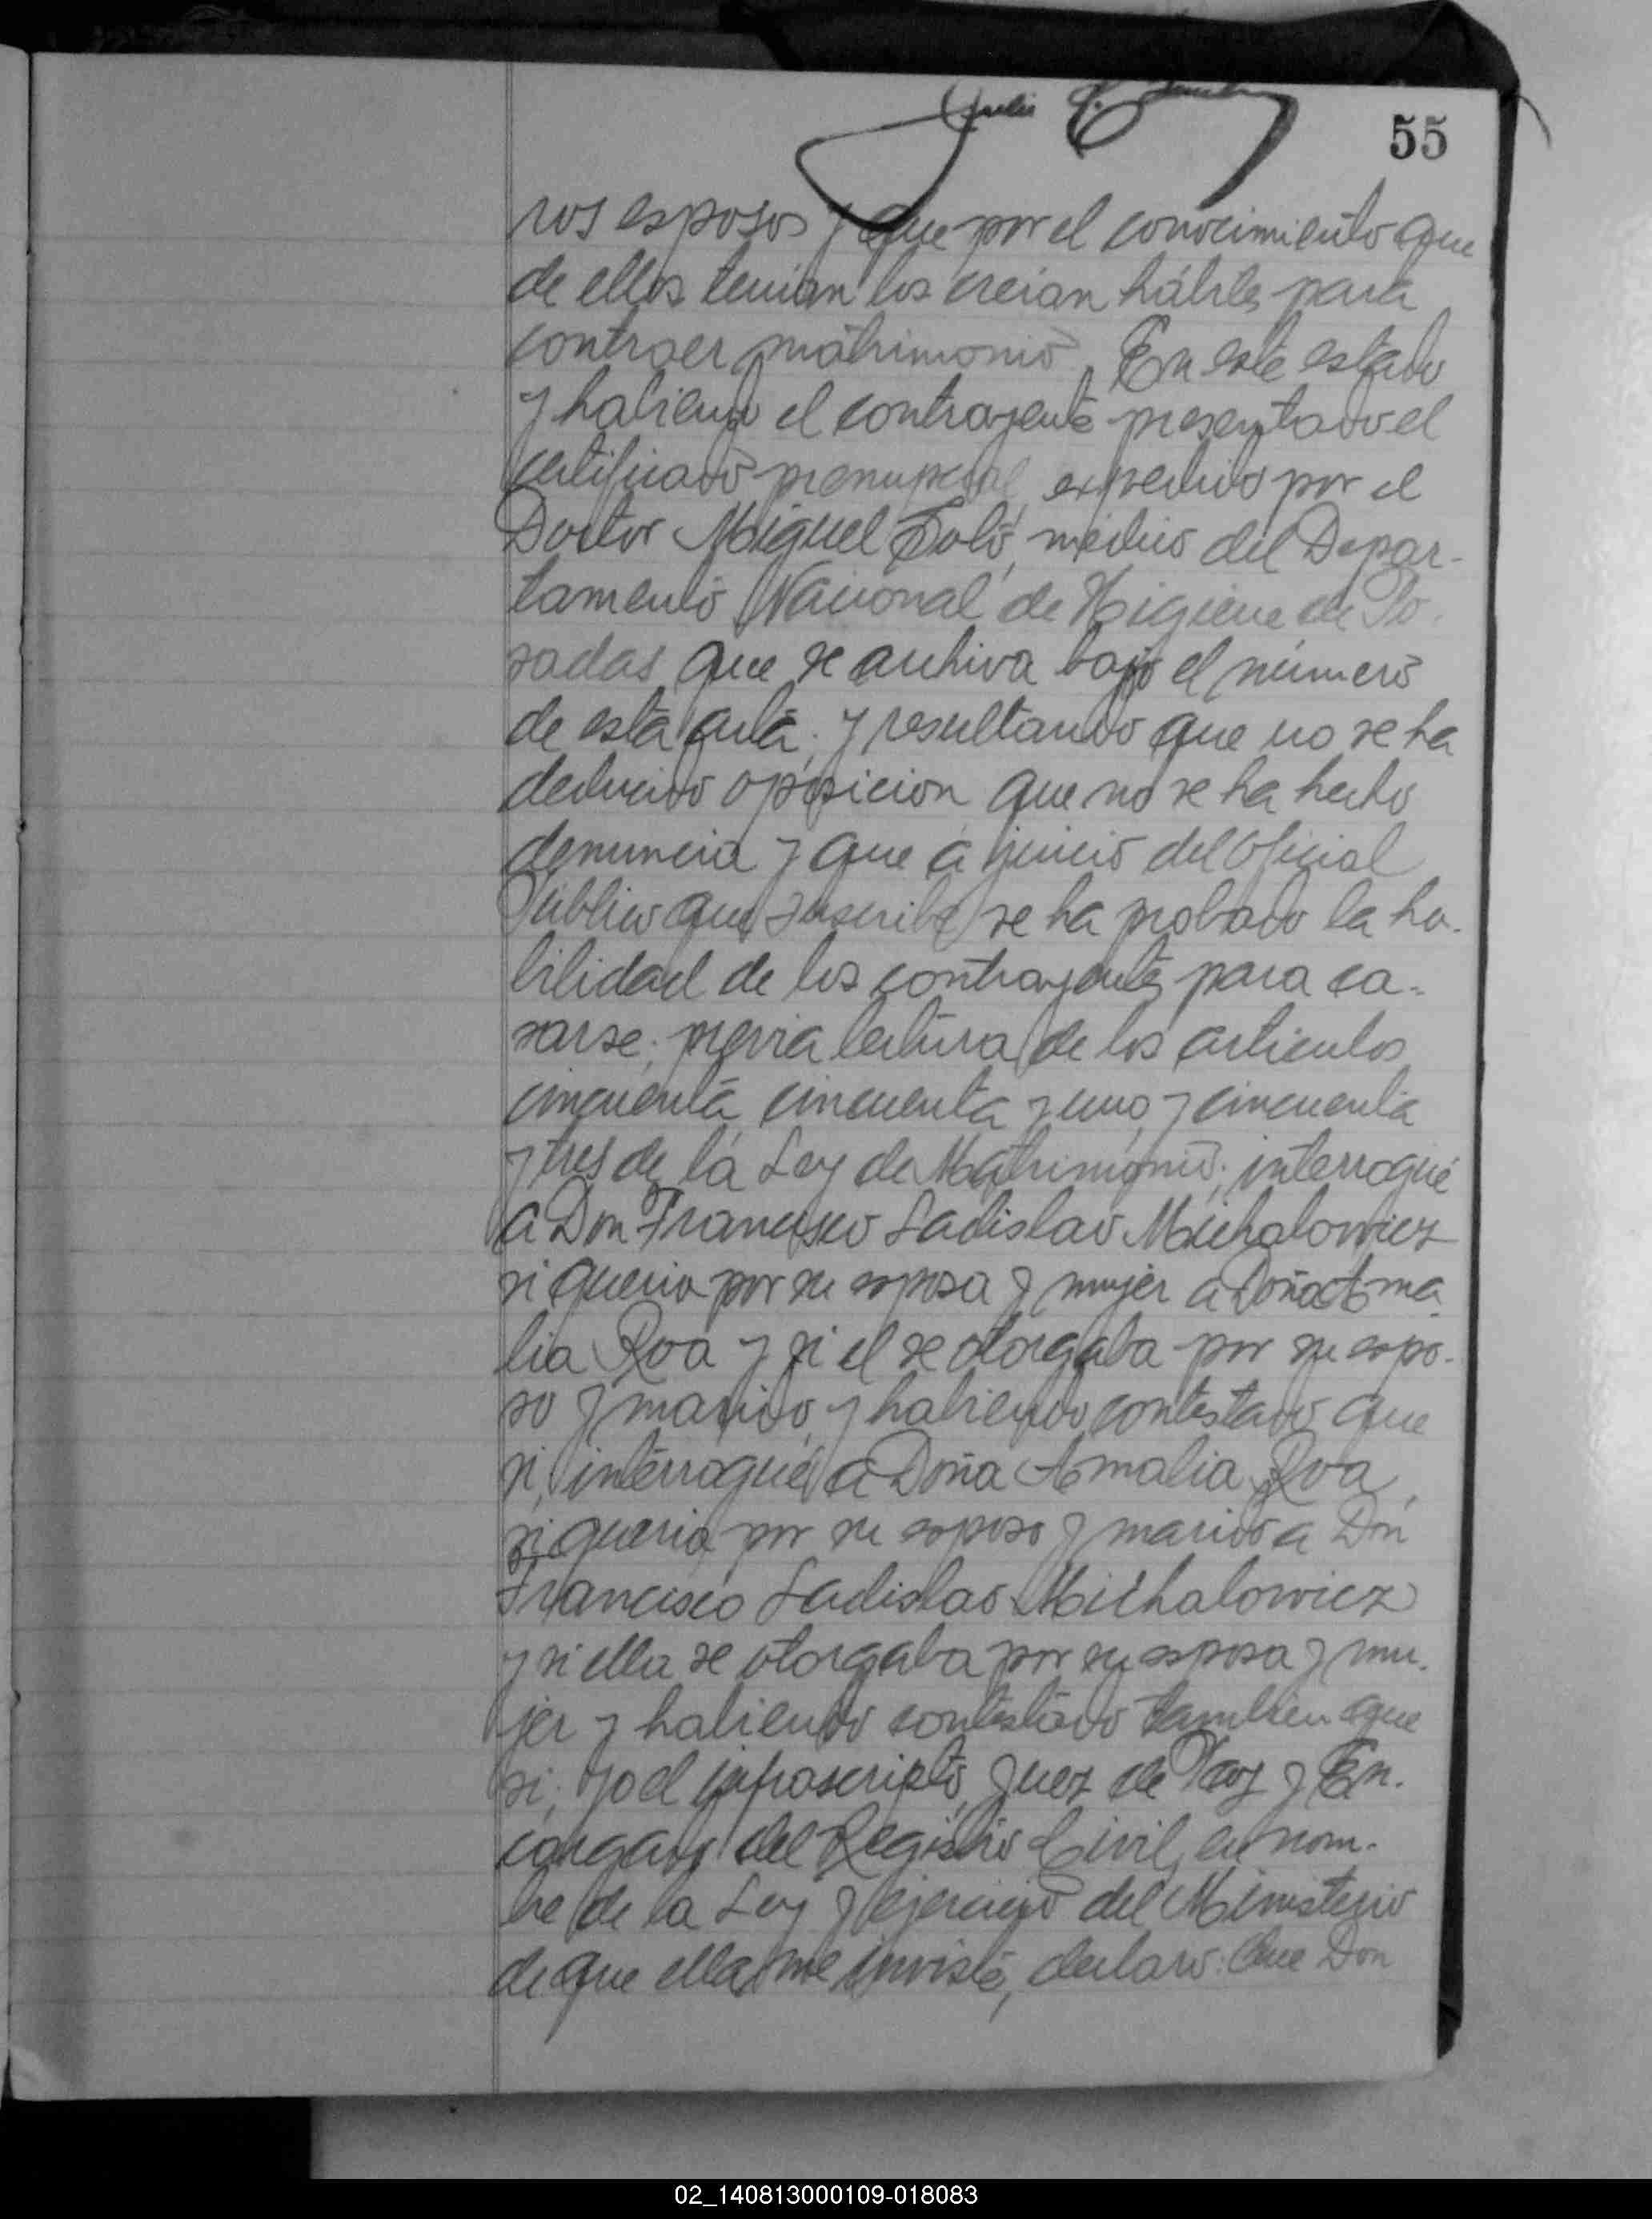 55
ros esposos y que por el conocimiento que
de ellos tenian los creian hábiles para
contraer matrimonio. En este estado
y habiendo el contrayente presentado el
certificado prenupcial expedido por el
Doctor Miguel médico del Depar-
tamento Nacional de Higiene de Po-
sadas que se archiva bajo el número
de esta acta; y resultando que no se ha
deducido oposicion que no se ha hecho
denuncia y que a juicio del Oficial
Público que suscribe se ha probado la ha-
bilidad de los contrayentes para ca-
sarse; previa lectura de los articulos
cincuenta, cincuenta y uno, y cincuenta
y tres de la Ley de Matrimonio; interrogué
a Don Francisco Ladislao Michalowicz
si queria por su esposa y mujer a Doña Ama-
lia Roa y si el se otorgaba por su espo-
so y marido, y habiendo contestado que
si, interrogué a Doña Amalia Roa,
si queria por su esposo y marido a Don
Francisco Ladislao Michalowicz
y si ella se otorgaba por su esposa y mu-
jer y habiendo contestado tambien que
si; yo el infrascripto, Juez de Paz y En-
cargado del Registro Civil, en nom-
bre de la Ley y ejercicio del Ministerio
de que ella me inviste, declaro: Que Don
02_140813000109-018083